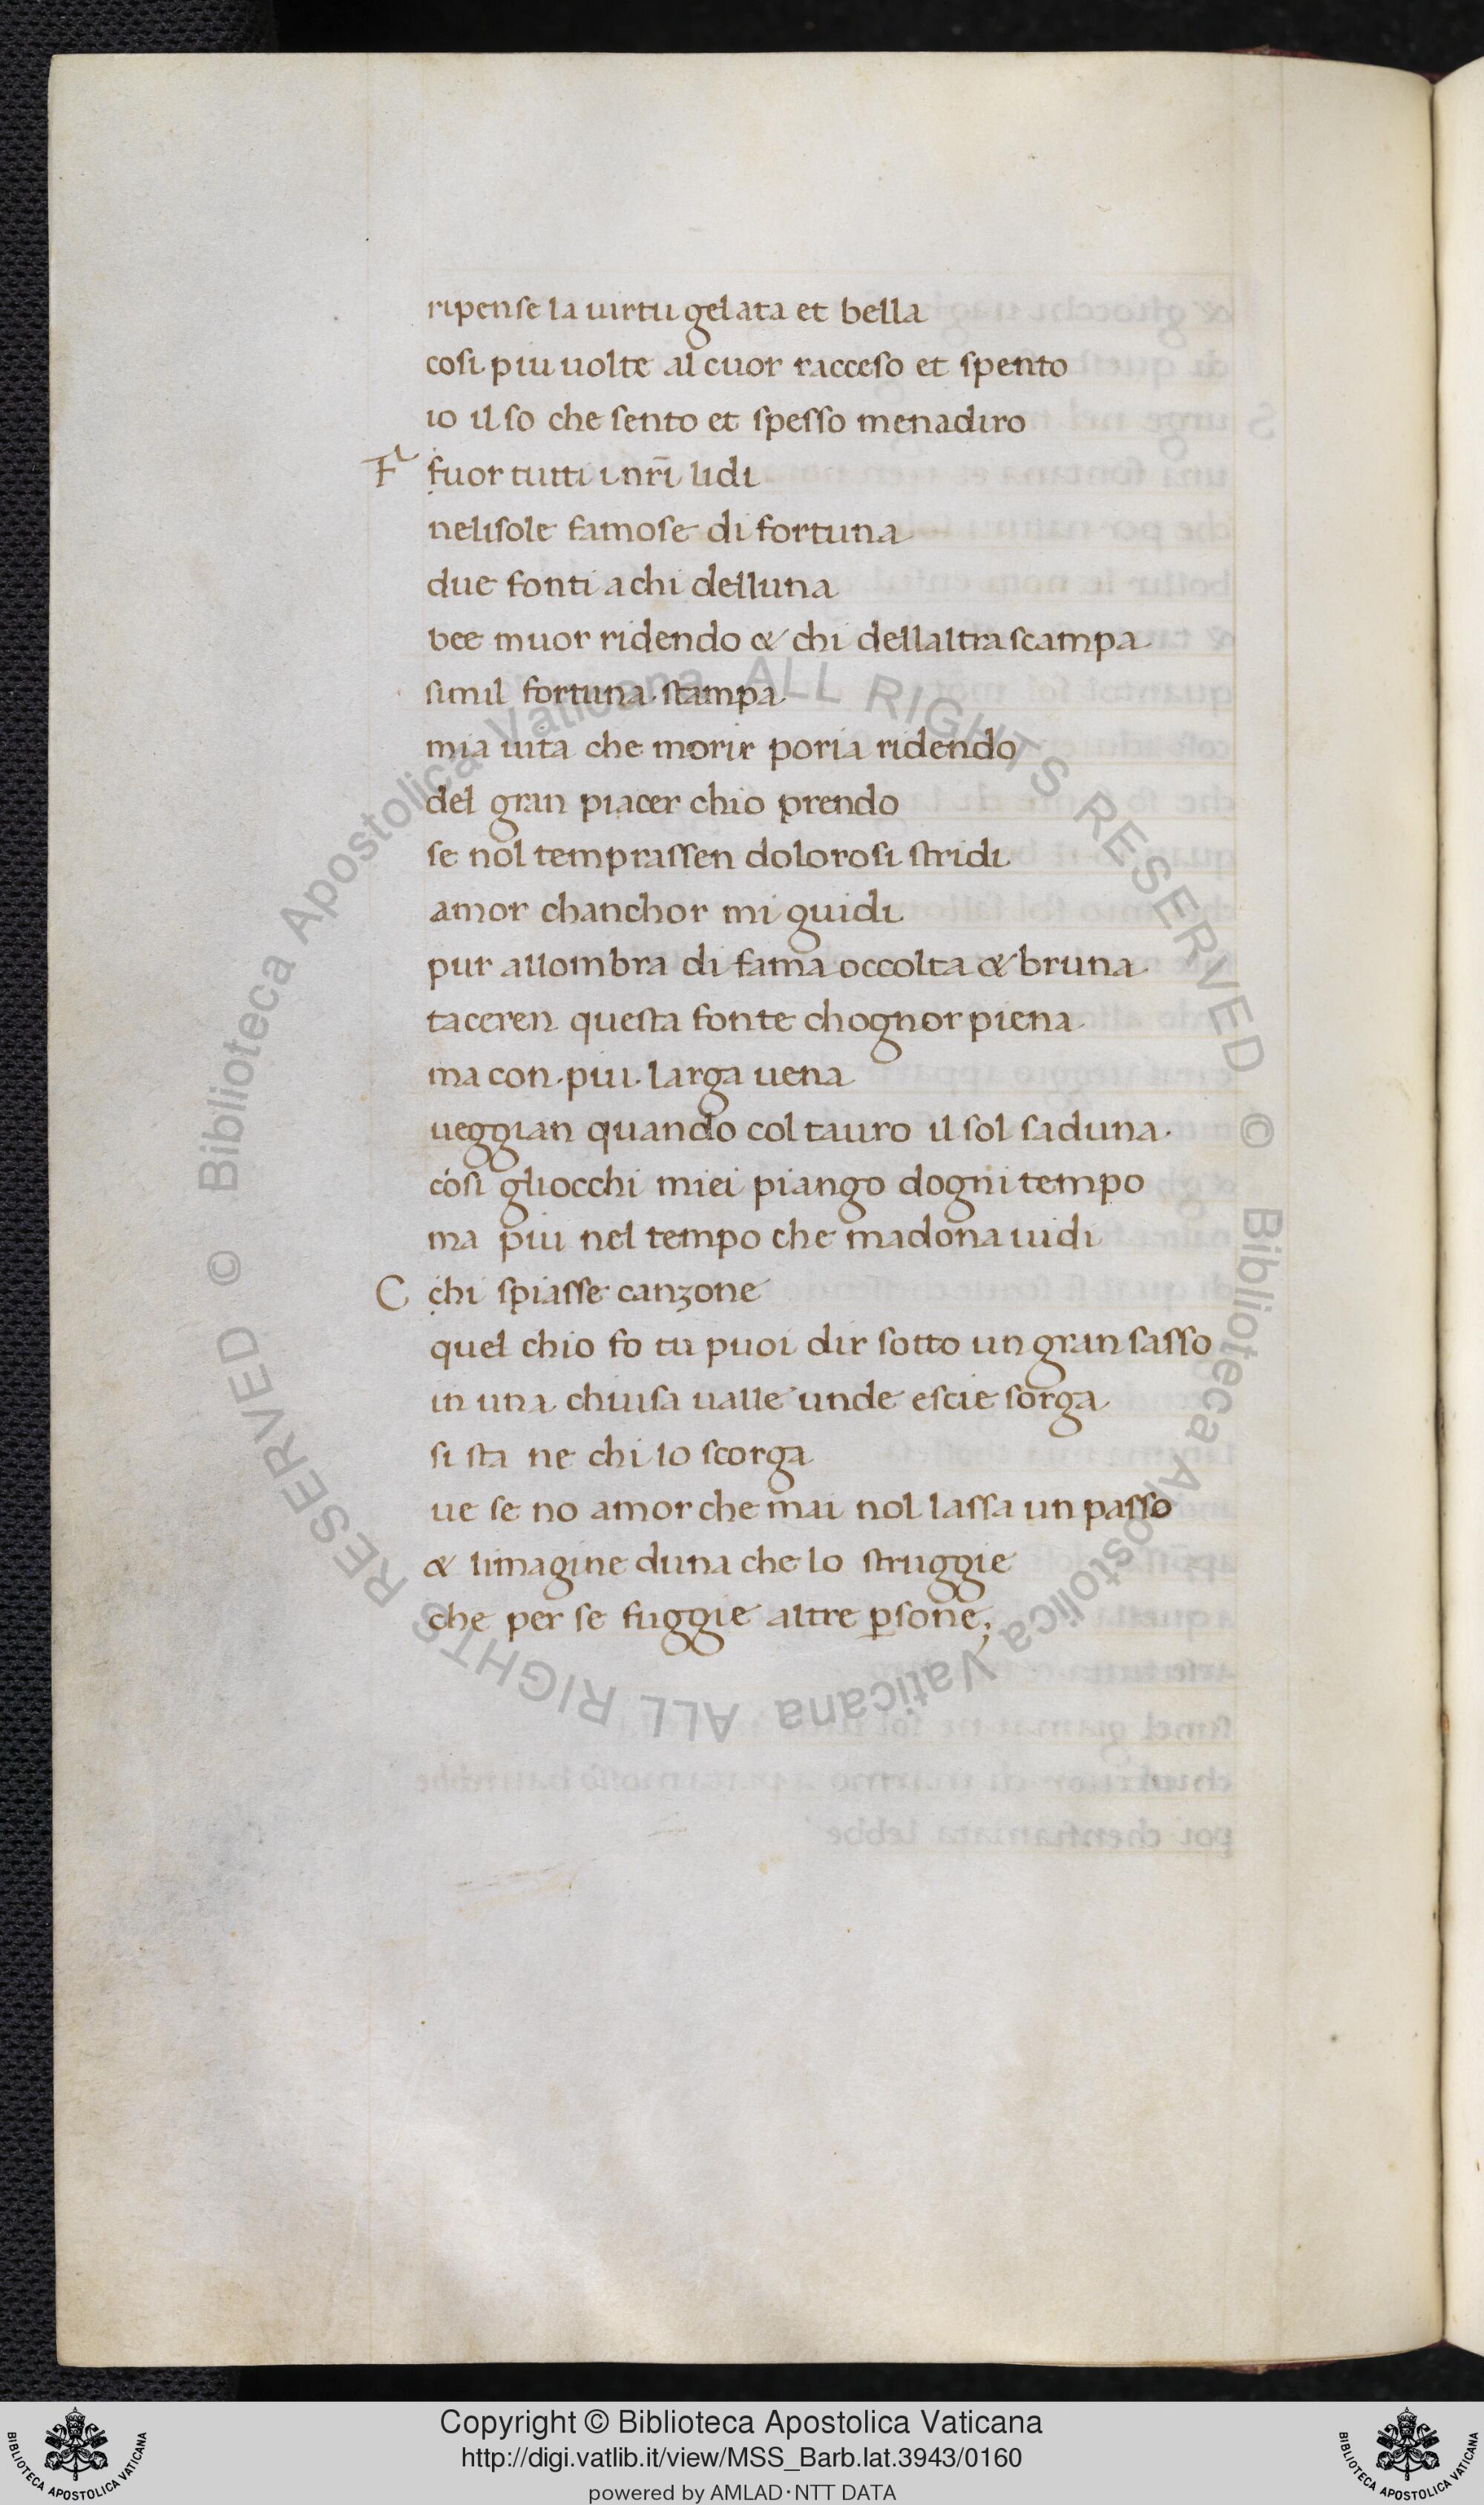 ripense la uirtu gelata et bella
cosi piu uolte al cuor racceso et spento
io il so che sento et spesso menadiro
F fuor tutti i nr̄i lidi
nelisole famose di fortuna
due fonti a chi delluna
bee muor ridendo & chi dellaltra scampa
simil fortuna stampa
mia uita che morir poria ridendo
del gran piacer chio prendo
se nol temprassen dolorosi stridi
amor chanchor mi guidi
pur allombra di fama occolta & bruna
taceren questa fonte chognor piena
ma con piu larga uena
ueggian quando col tauro il sol saduna.
cosi gliocchi miei piango dogni tempo
ma piu nel tempo che madōna uidi
C chi spiasse canzone
quel chio fo tu puoi dir sotto un gran sasso
in una chiusa ualle unde escie sorga
si sta ne chi lo scorga
ue se no amor che mai nol lassa un passo
& limagine duna che lo struggie
che per se fuggie altre ꝑsone;
© Biblioteca Apostolica Vaticana ALL RIGHTS RESERVED © Biblioteca Apostolica Vaticana ALL RIGHTS RESERVED
Copyright © Biblioteca Apostolica Vaticana
http://digi.vatlib.it/view/MSS_Barb.lat.3943/0160
powered by AMLAD·NTT DATA
BIBLIOTECA APOSTOLICA VATICANA
BIBLIOTECA APOSTOLICA VATICANA